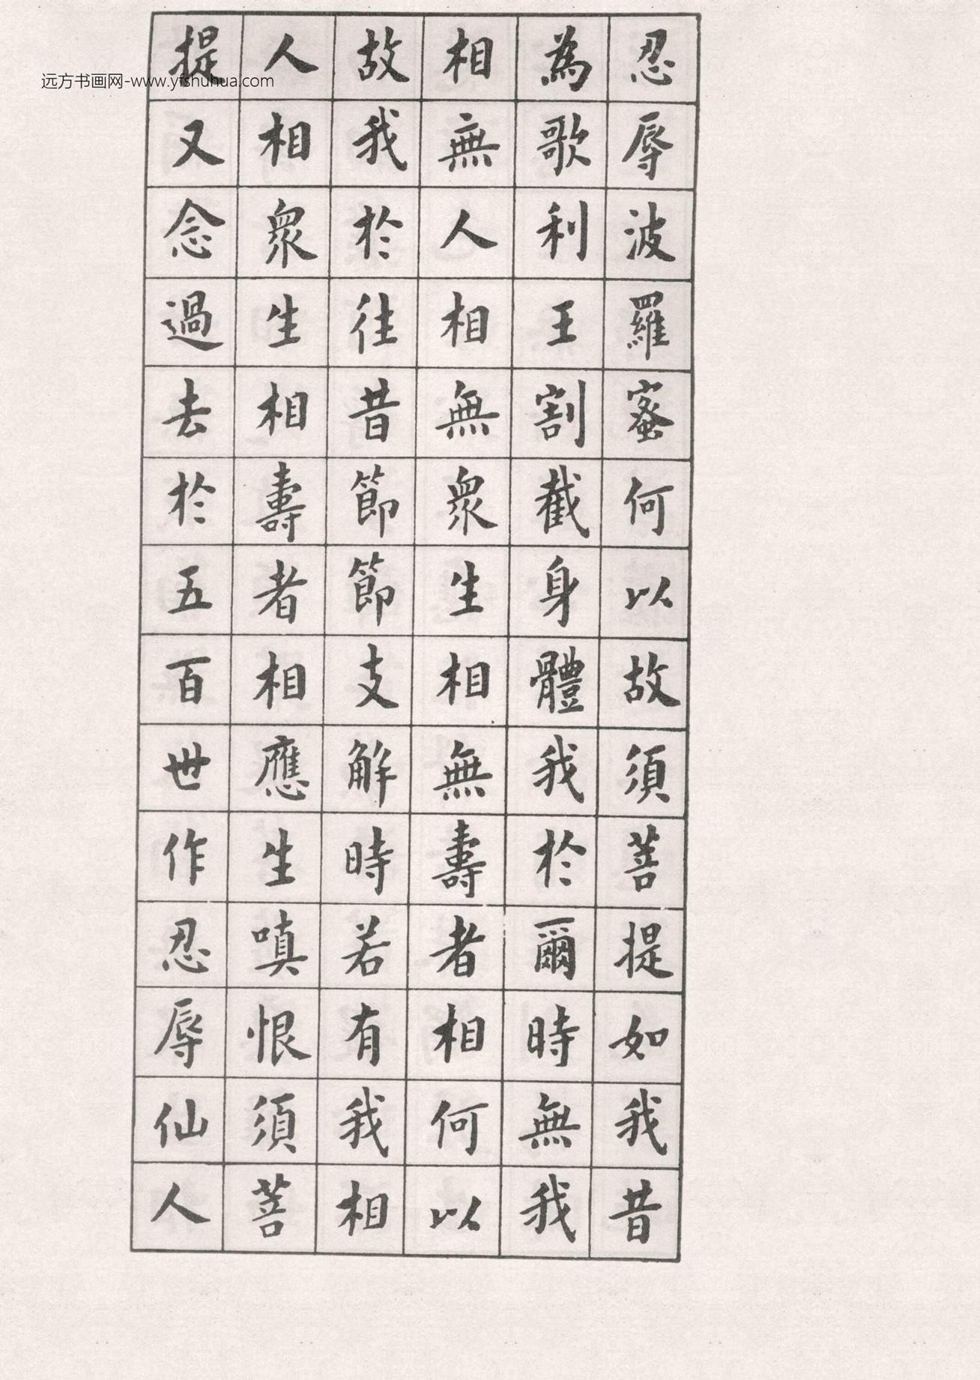 忍辱波羅蜜何以故須菩提如我昔
為歌利王割截身體我於爾時無我
相無人相無衆生相無壽者相何以
故我於往昔節節支解時若有我相
人相衆生相壽者相應生嗔恨須菩
提又念過去於五百世作忍辱仙人
远方书画网-www.yfshuhua.com